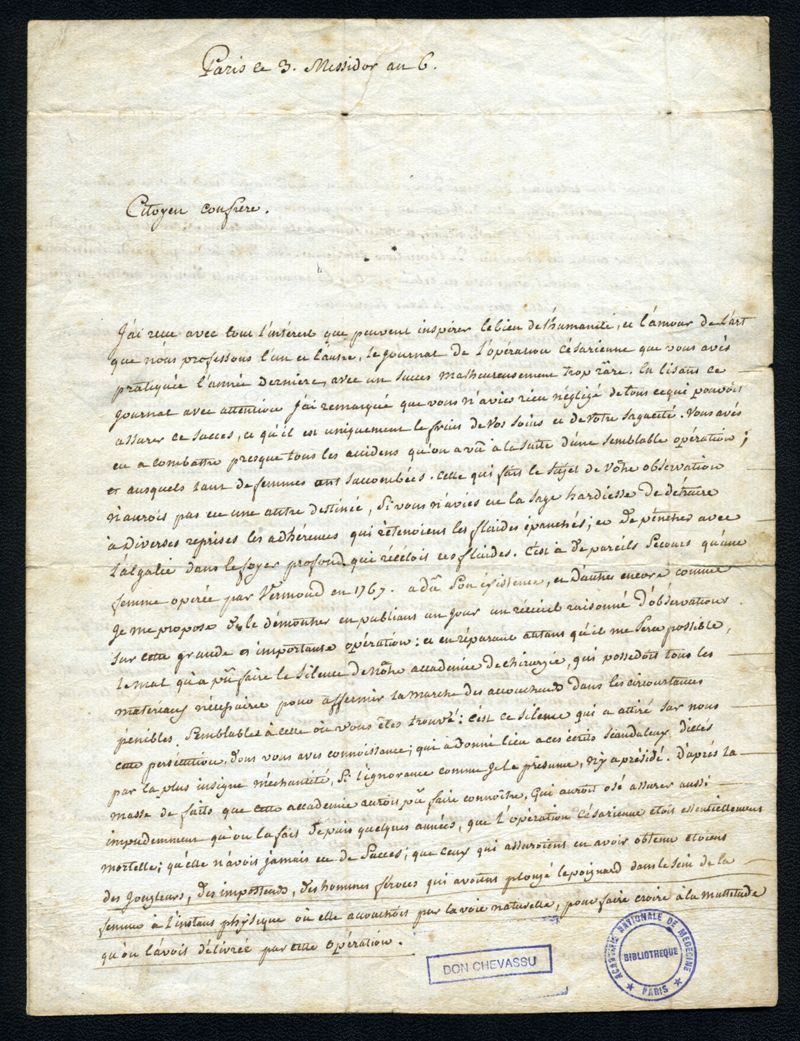 Paris ce 3. Messidor an 6.
Citoyen confrère.
J'ai reçu avec tout l'intérest que peuvent inspirer le bien de l'humanité, et l'amour de l'art
que nous professons l'un et l'autre, le journal de l'opération césarienne que vous avés
pratiquée l'année dernière, avec un succès malheureusement trop râre. En lisant ce
journal avec attention j'ai remarqué que vous n'aviez rien négligé de tous ce qui pouvoit
assurer ce succès, et qu'il est uniquement le fruit de vos soins et de votre sagacité. Vous avés
eu a combattre presque tous les accidens qu'on a vû à la suite d'une semblable opération;
et auxquels tant de femmes ont succombées. Celle qui fait le sujet de vôtre observation
n'aurois pas eu une autre destinée, si vous n'aviés eu la sage hardiesse de détruire
à diverses reprises les adhérences qui retenoient les fluides épanchés; et de pénétrer avec
l'algalie dans le foyer profond qui recéloit ces fluides. C'est à de pareils secours qu'une
femme opérée par Vermond en 1767. a dû son existence, et d'autres encore comme
je me propose de le démontrer en publiant un jour un récüeil raisonné d'observations
sur cette grande et importante opération: et en réparant autant qu'il me sera possible,
le mal qu'a pû faire le silence de nôtre accadémie de chirurgie, qui possedoit tous les
materiaux nécéssaires pour affermir la marche des accoucheurs dans les circonstances
pénibles semblables à celle où vous êtes trouvé: c'est ce silence qui a attiré sur nous
cette persécution, dont vous avés connoissance; qui a donné lieu a ces écrits scandaleux, dictés
par la plus insigne méchanteté, si l'ignorance comme je le présume, n'y a présidé. D'après la
masse de faits que cette accadémie auroit pû faire connoître, qui auroit osé assurer aussi
impudemment qu'on l'a fait depuis quelques années, que l'opération césarienne étoit essentiellement
mortelle; qu'elle n'avois jamais eu de succès; que ceux qui assuroient en avoir obtenu étoient
des jongleurs, des imposteurs, des hommes féroces qui avoient plongé le poignard dans le sein de la
femme à l'instant physique où elle accouchoit par la voie naturelle, pour faire croire à la multitude
qu'on l'avoit délivrée par cette opération.
DON CHEVASSU
ACADÉMIE NATIONALE DE MÉDECINE
BIBLIOTHEQUE
PARIS